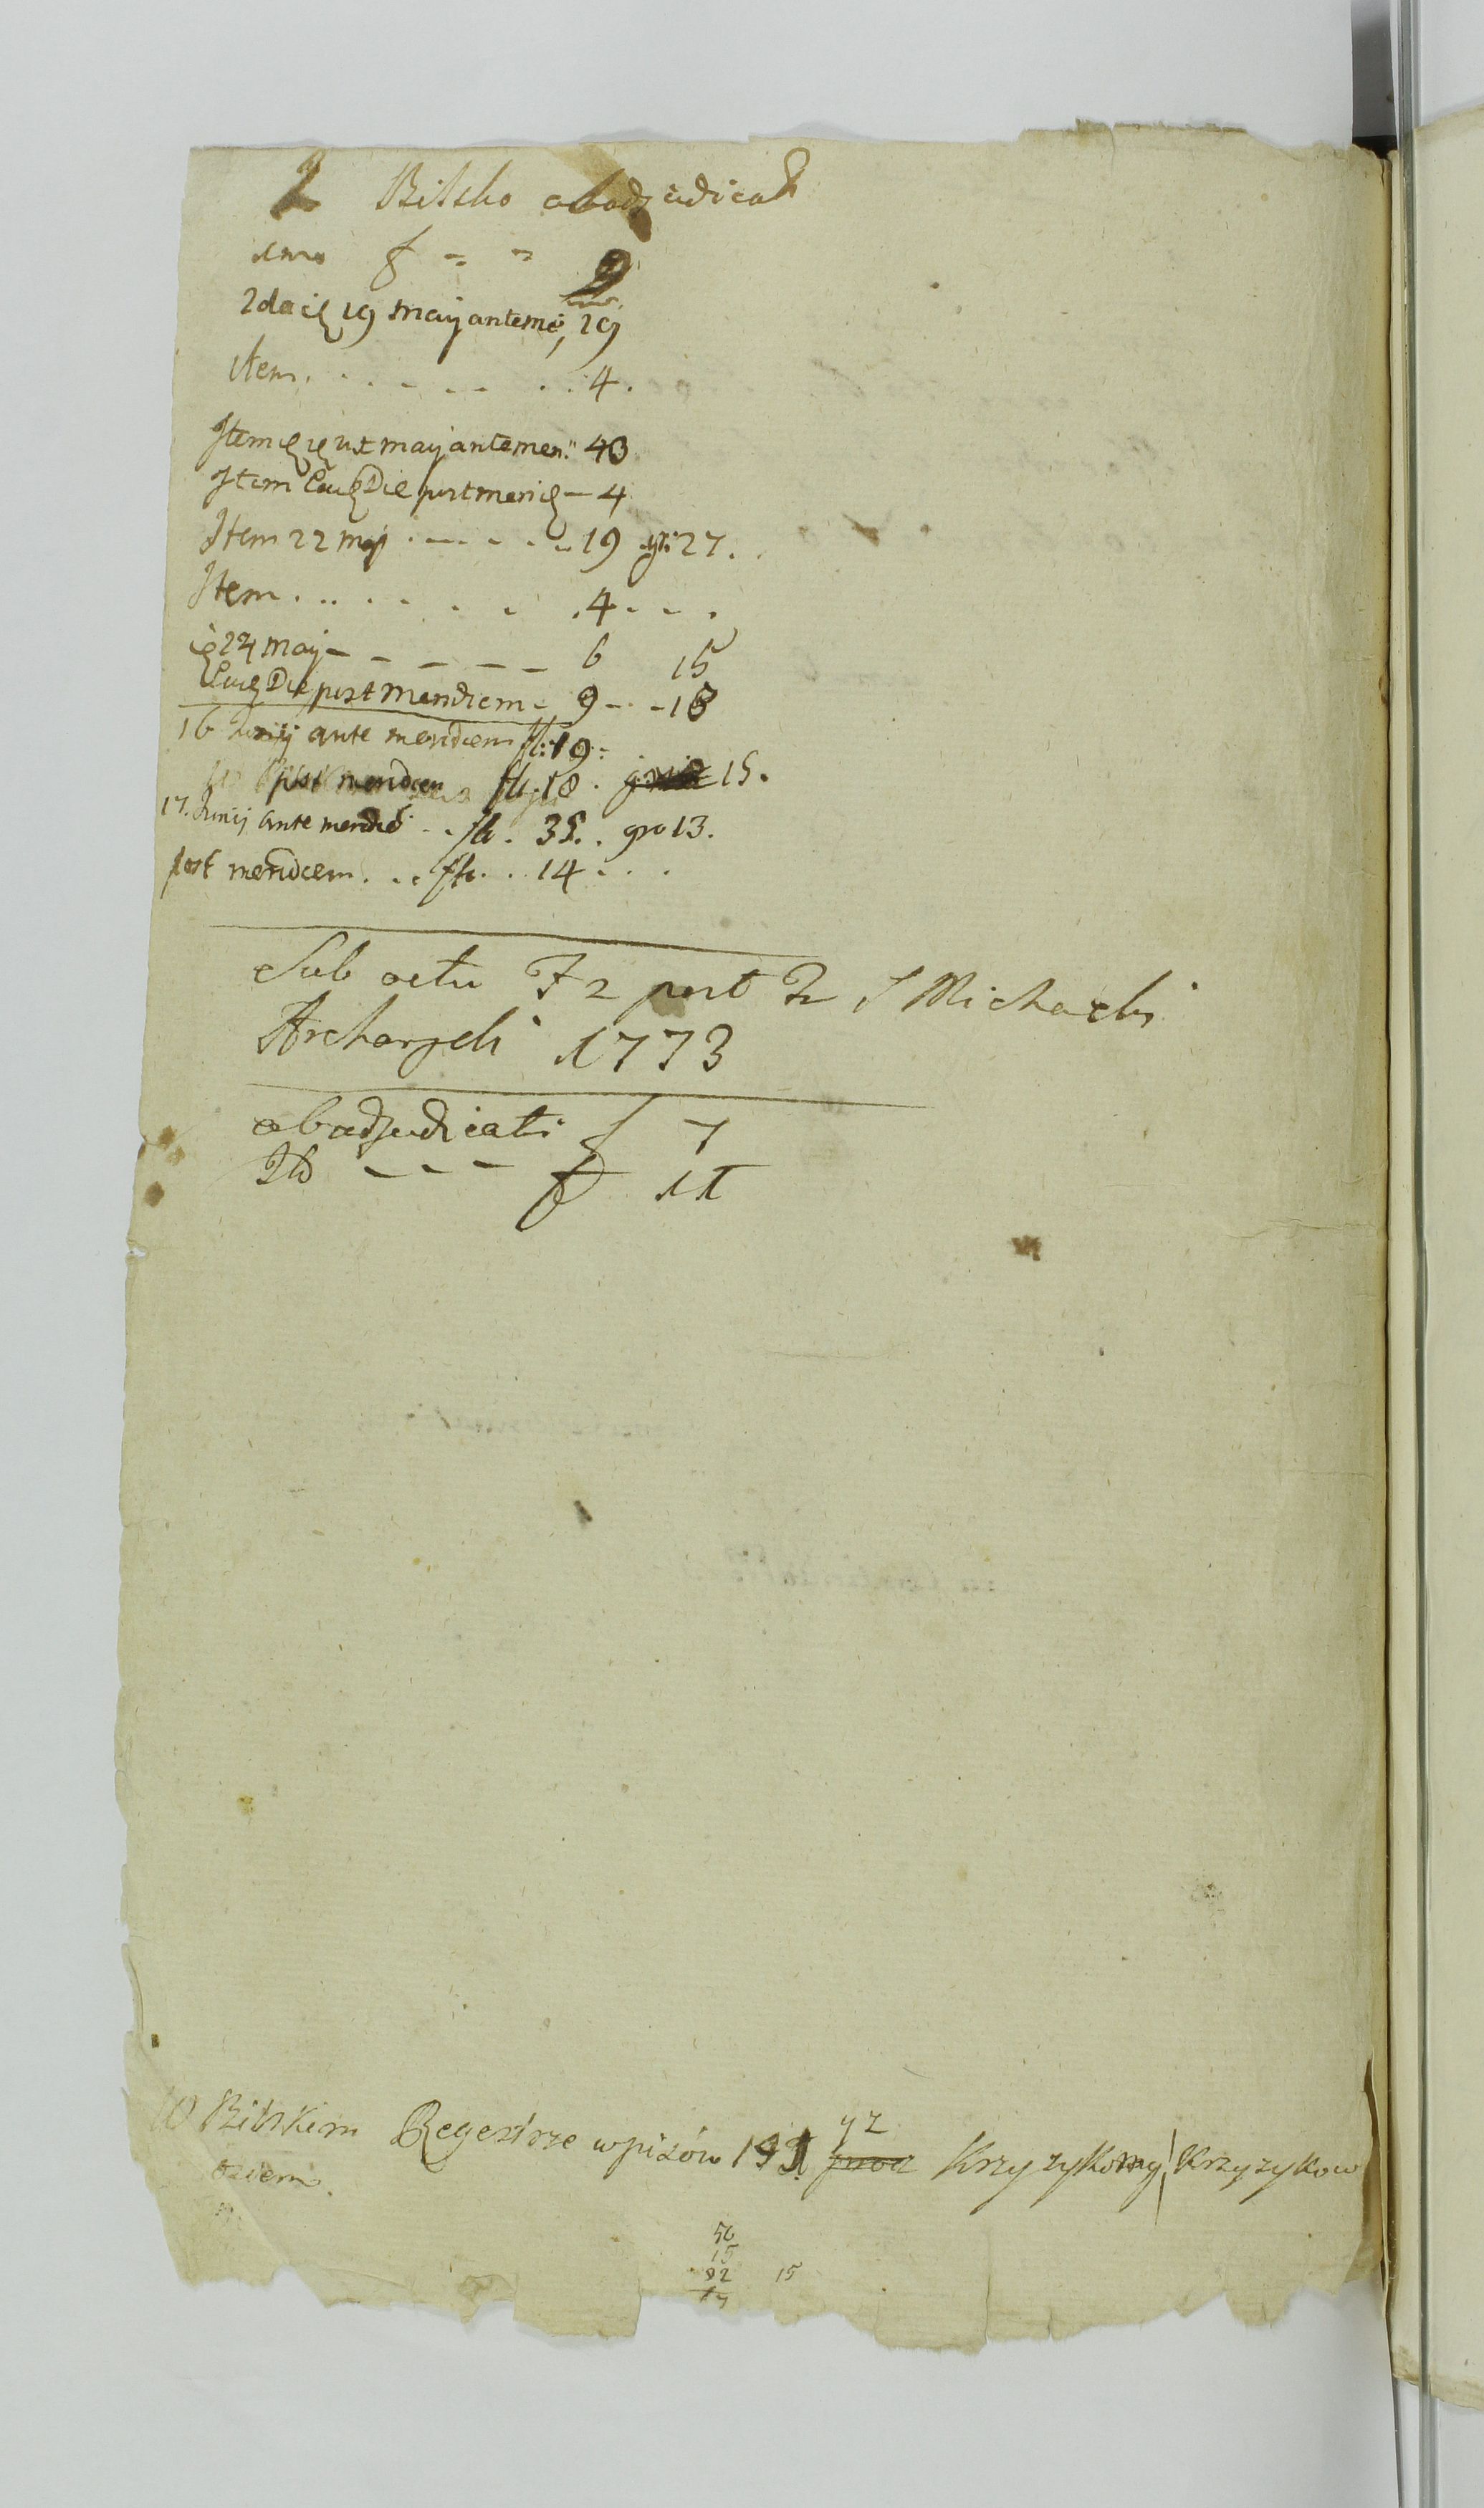 2 Bilsko abadzudicat
imo f - - 9
2da 19 maij anteme, 29
item . . . . . . . 4 .
Item ut maij antemer: 40
Item Die postmeri - 4
Item 22 maj . - - - - 19 gr: 27.
Item . . . . . . . 4 - - .
24 maij - - - - - - 6 15
Die post meridiem - 9 - - 18
16 Junij ante meridiem fl: 19 -
post meridiem fl. 18 . 15.
17. Junij ante meridie . . fl. 35. . gro 13.
post meridiem . . . fl. . . 14 . . .
Sub actu F 2 post S Michaelis
Archangeli 1773
abadzudicati f 7
- - - f 11
W Bilskim Regestrze wpisów 191 yz Krzyzykowy Krzyzykow
56
15
92 15